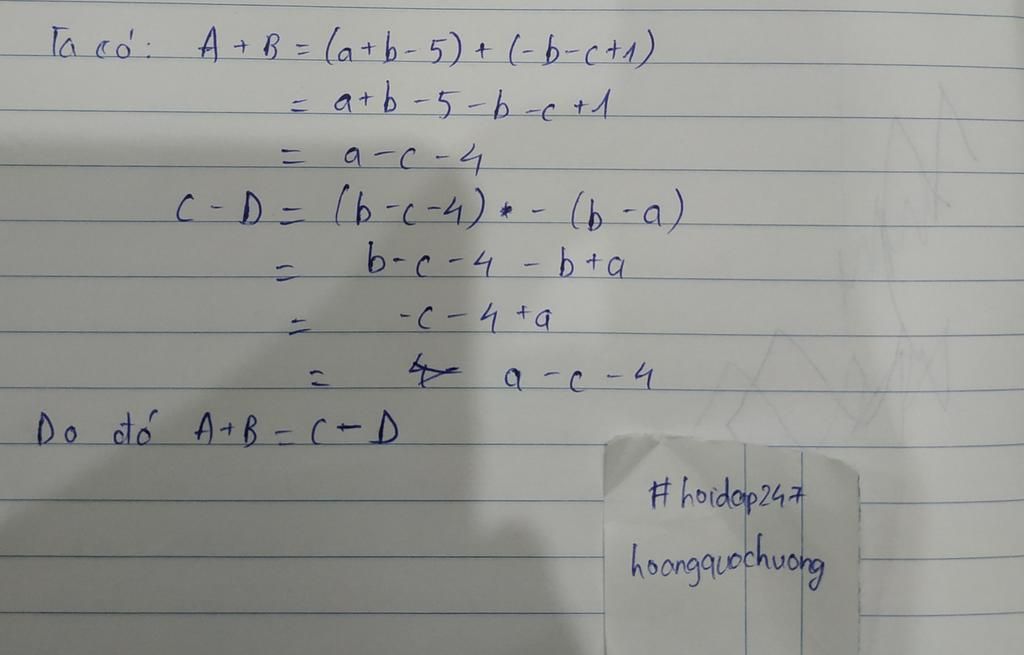 Ta có: A + B = (a+b-5) + (-b-c+1)
= a+b-5-b-c+1
= a-c-4
C - D = (b-c-4) - (b-a)
= b-c-4-b+a
= -c-4+a
= a-c-4
Do đó A+B = C-D
#hoidap247
hoangquochuong